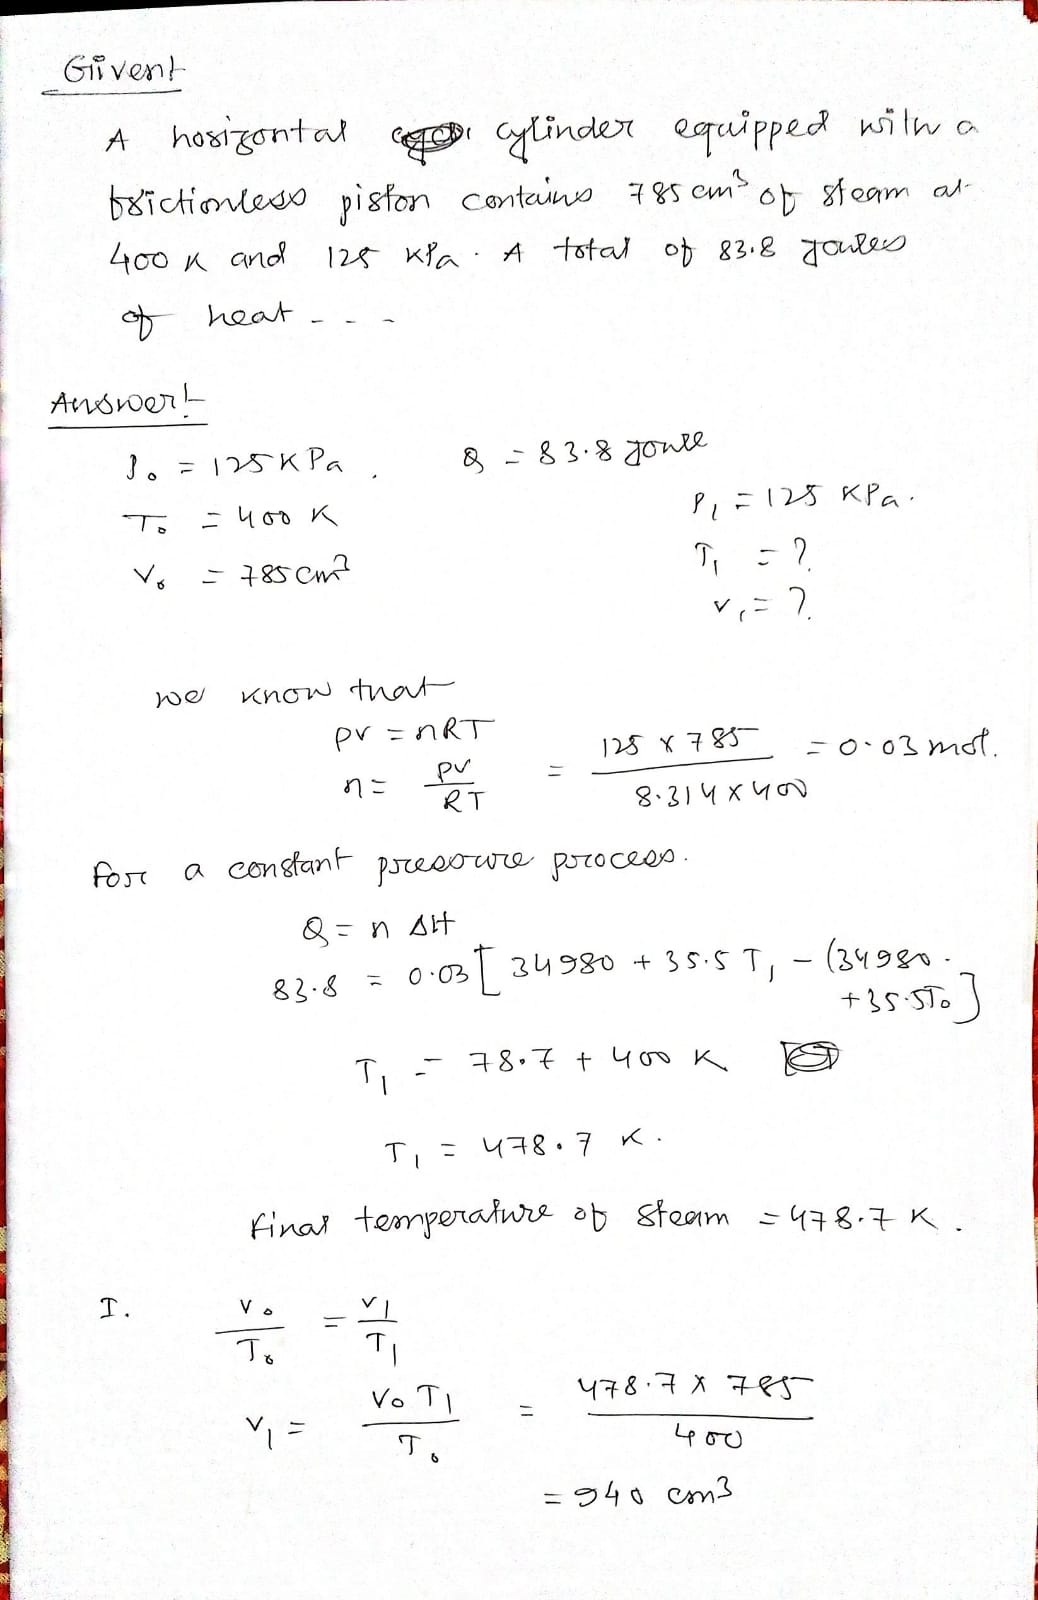 Given
A horizontal cylinder equipped with a
frictionless piston contains 785 cm³ of steam at
400 K and 125 KPa. A total of 83.8 joules
of heat - - -
Answer
P₀ = 125 KPa. Q = 83.8 joule
T₀ = 400 K P₁ = 125 KPa.
V₀ = 785 cm³ T₁ = ?
V₁ = ?
we know that
PV = nRT
n = PV/RT = 125 × 785 / 8.314 × 400 = 0.03 mol.
for a constant pressure process.
Q = n ΔH
83.8 = 0.03 [34980 + 35.5 T₁ - (34980 + 35.5T₀]
T₁ = 78.7 + 400 K
T₁ = 478.7 K.
final temperature of steam = 478.7 K.
I. V₀/T₀ = V₁/T₁
V₁ = V₀ T₁/T₀ = 478.7 × 785 / 400
= 940 cm³